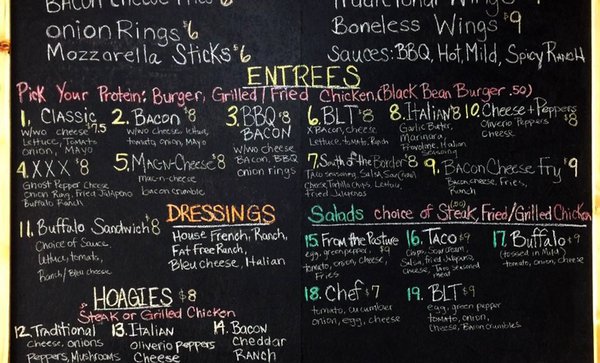 Bacon Cheese Fries $6
Traditional Wings $
onion Rings $6
Boneless Wings $9
Mozzarella Sticks $6
Sauces: BBQ, Hot, Mild, Spicy Ranch
ENTREES
Pick Your Protein: Burger, Grilled/Fried Chicken, (Black Bean Burger .50)
1. Classic $7.5
w/wo cheese
Lettuce, Tomato
onion, Mayo
2. Bacon $8
w/wo cheese,
tomato, onion, Mayo
3. BBQ $8
BACON
w/wo cheese
Bacon, BBQ
onion rings
4. XXX $8
Ghost Pepper Cheese
Onion Ring, Fried Jalapeno
Buffalo Ranch
5. Mac-n-Cheese $8
mac-n-cheese
bacon crumble
6. BLT $8
X Bacon, Cheese,
Lettuce, Tomato
Ranch
8. Italian $8
Garlic Butter,
Marinara,
Provolone, Italian
Seasoning
10. Cheese + Peppers $8
Oliverio Peppers
cheese
7. South of the Border $8
Taco seasoning, Salsa,
Cheese, Tortilla Chips, Lettuce,
Fried Jalapeno
9. Bacon Cheese Fry $9
Bacon, cheese, Fries,
Ranch
11. Buffalo Sandwich $8
Choice of Sauce,
lettuce, tomato,
Ranch/Bleu cheese
DRESSINGS
House French, Ranch,
Fat Free Ranch,
Bleu cheese, Italian
Salads choice of Steak, Fried/Grilled Chicken
15. From the Pasture $9
egg, green pepper
tomato, onion, cheese,
Fries
16. Taco $9
Chips, Sour Cream,
Salsa, fried Jalapeno,
Cheese, Taco Seasoned
meat
17. Buffalo $9
(tossed in Mild)
tomato, onion, cheese
18. Chef $7
tomato, cucumber
onion, egg, cheese
19. BLT $9
egg, green pepper
tomato, onion,
Cheese, Bacon crumbles
HOAGIES $8
Steak or Grilled Chicken
12. Traditional
cheese, onions
Peppers, Mushrooms
13. Italian
oliverio peppers
Cheese
14. Bacon
Cheddar
Ranch